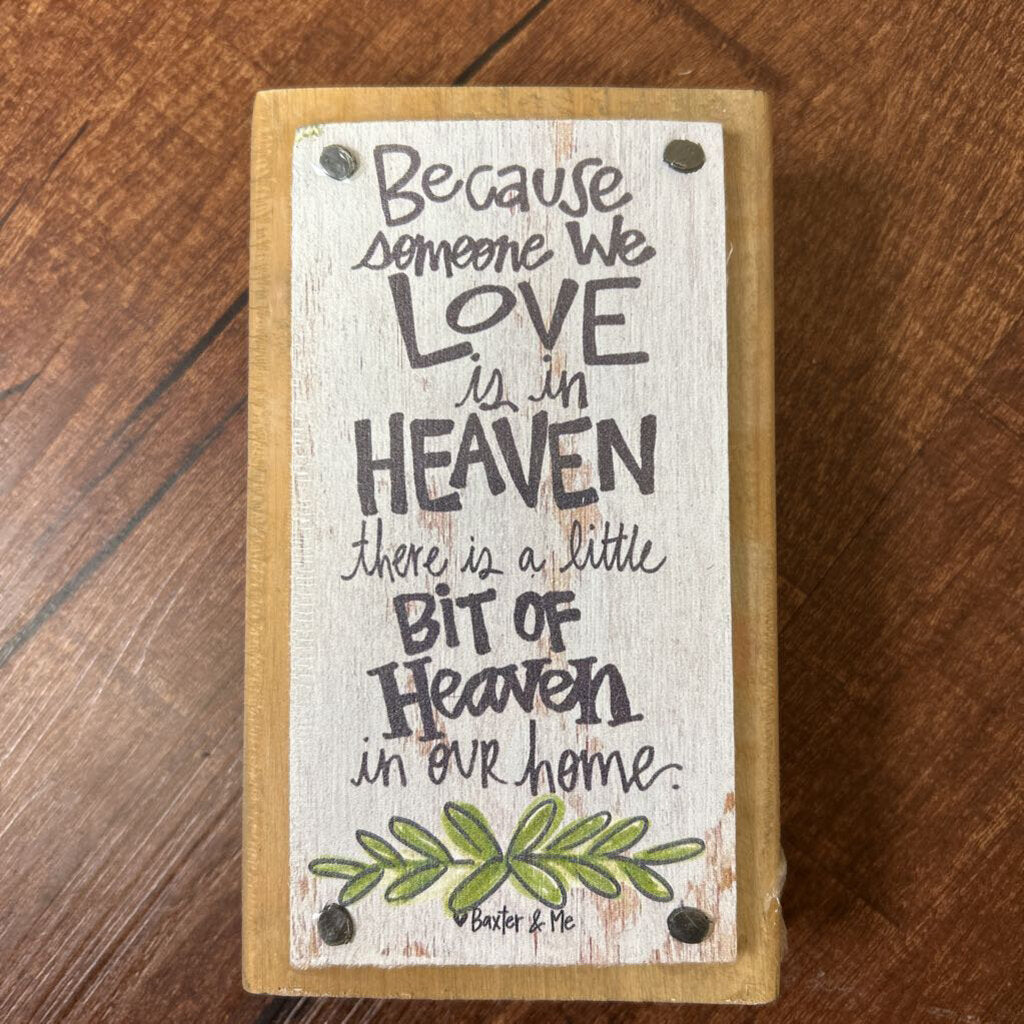 Because
someone We
LOVE
is in
HEAVEN
there is a little
BiT OF
Heaven
in OUR home.
Baxter & Me